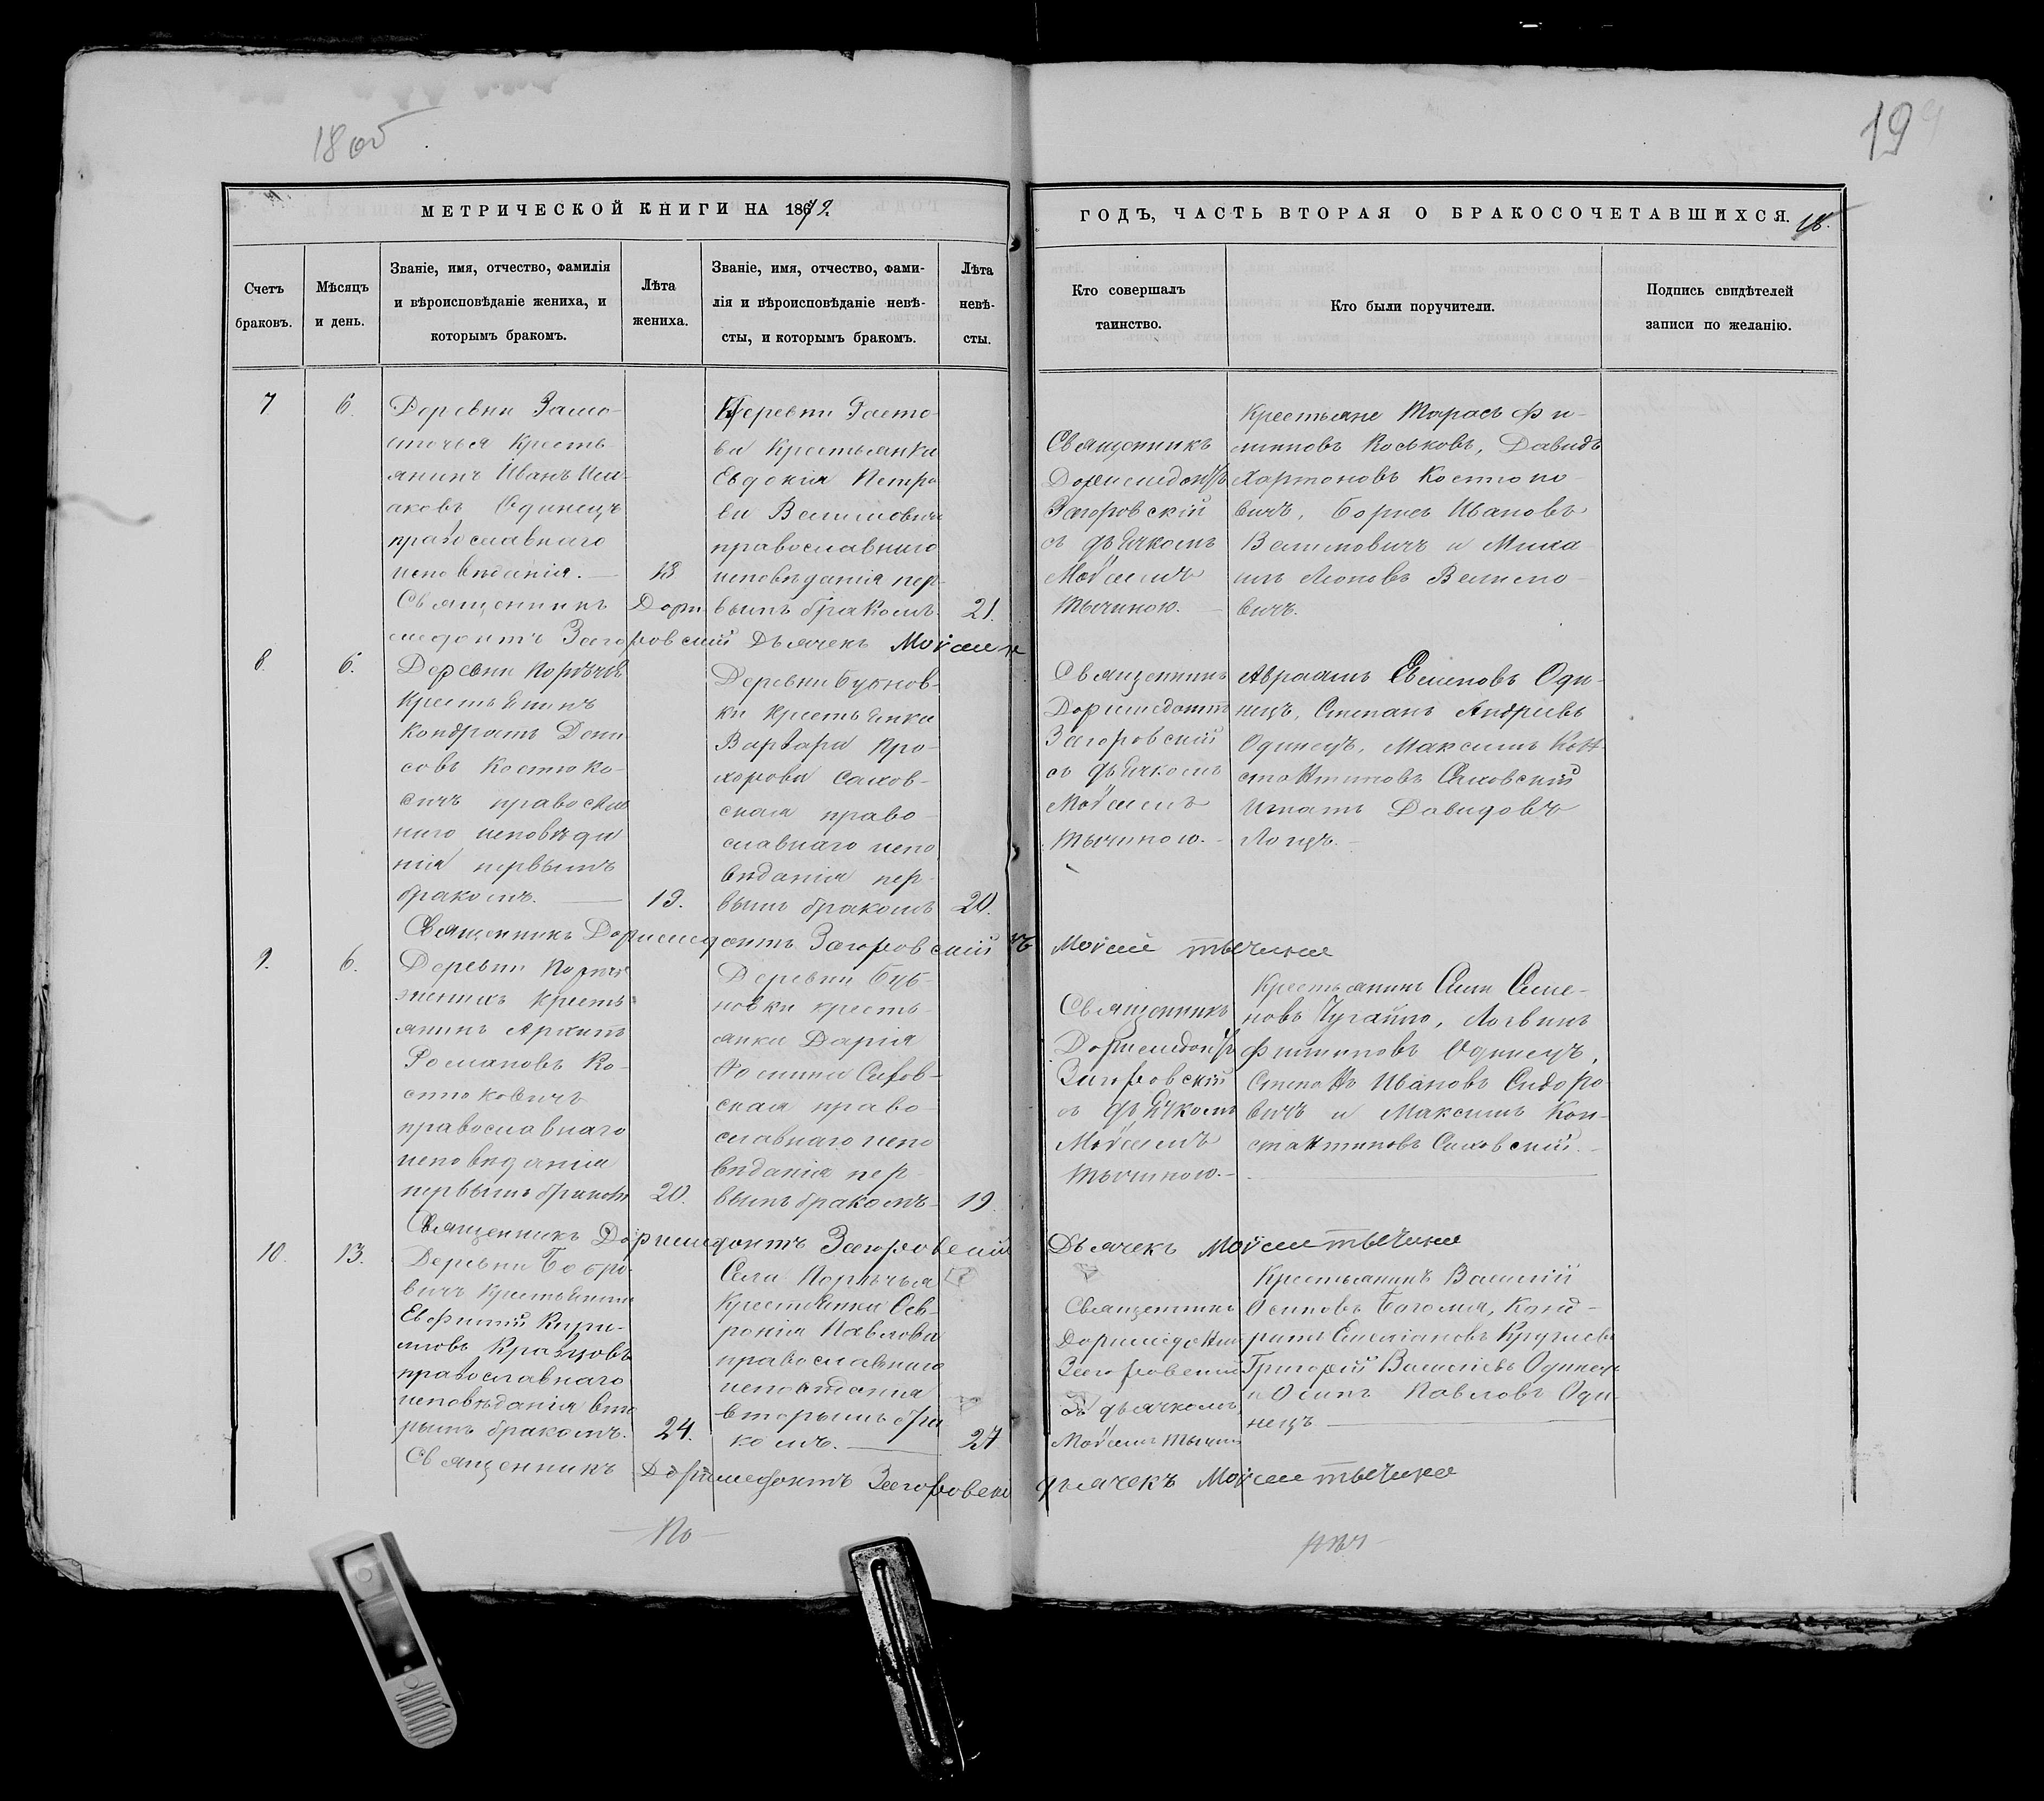 19
МЕТРИЧЕСКОЙ КНИГИ НА 1879.
ГОДЪ, ЧАСТЬ ВТОРАЯ О БРАКОСОЧЕТАВШИХСЯ.
Счетъ
браковъ.
Мѣсяцъ
и день.
Званіе, имя, отчество, фамилія
и вѣроисповѣданіе жениха, и
которымъ бракомъ.
Лѣта
жениха.
Званіе, имя, отчество, фами-
лія и вѣроисповѣданіе невѣ-
сты, и которымъ бракомъ.
Лѣта
невѣ-
сты.
Кто совершалъ
таинство.
Кто были поручители.
Подпись свидѣтелей
записи по желанію.
7
6.
Деревни
крестъ
янинъ Иванъ Иса
аковъ Одинецъ
православнаго
исповѣданія.
крестьянка
Евдокія Петро
ва
православнаго
исповѣданія пер-
вымъ бракомъ
21.
Священникъ
Доримедонтъ
Загоровскій
съ дьячкомъ
Мойсеемъ
Тычиною.
Крестьяне Тарасъ Фи-
липповъ Коськовъ, Давидъ
Харитоновъ Костюко
вичъ, Борисъ Ивановъ
и Миха
илъ
вичъ.
Священникъ Дори
медонтъ Загоровскій Дьячекъ Мойсей
8
6.
Деревни Порѣчья
крестьянинъ
Кондратъ Дени
совъ Костюко-
вичъ православ
наго исповѣда
нія первымъ
бракомъ.
19.
Деревни Бубнов-
ки крестьянка
Варвара Про-
хорова Сахов-
ская право-
славнаго испо
вѣданія пер-
вымъ бракомъ
20.
Священникъ
Доримедонтъ
Загоровскій
съ дьячкомъ
Мойсеемъ
Тычиною.
Авраамъ Оди-
нецъ, Степанъ Андреевъ
Одинецъ, Максимъ Кон-
стантиновъ Саховскій
Игнатъ Давидовъ
Священникъ Доримедонтъ Загоровскій
Мойсей Тычина
9.
6.
Деревни
крестъ
янинъ Архипъ
Романовъ Ко-
стюковичъ
православнаго
исповѣданія
первымъ бракомъ
20.
Деревни Буб-
новки кресть-
янка Дарія
Фомина Сахов-
ская право-
славнаго испо
вѣданія пер-
вымъ бракомъ
19.
Священникъ
Доримедонтъ
Загоровскій
съ дьячкомъ
Мойсеемъ
Тычиною.
Крестьянинъ Сила Семе-
новъ
Филиповъ Одинецъ,
Степанъ Ивановъ Сидоро
вичъ и Максимъ Кон-
стантиновъ Саховскій.
Священникъ Доримедонтъ Загоровскій
Дьячекъ Мойсей Тычина
10.
13.
Деревни Бобро
вичъ крестьянинъ
Евфимій Кири-
ловъ
православнаго
исповѣданія вто
рымъ бракомъ.
24.
Села Порѣчья
крестьянка Фев-
ронія Павлова
православнаго
исповѣданія
вторымъ бра
комъ.
27
Священникъ
Доримедонтъ
Загоровскій
съ дьячкомъ
Мойсеемъ Тычин
Крестьянинъ Василій
Осиповъ Конд-
ратъ Емеліановъ
Григорій Василіевъ Одинецъ
и Осипъ Павловъ Оди-
нецъ
Священникъ Доримедонтъ Загоровскій
дьячекъ Мойсей Тычина
По